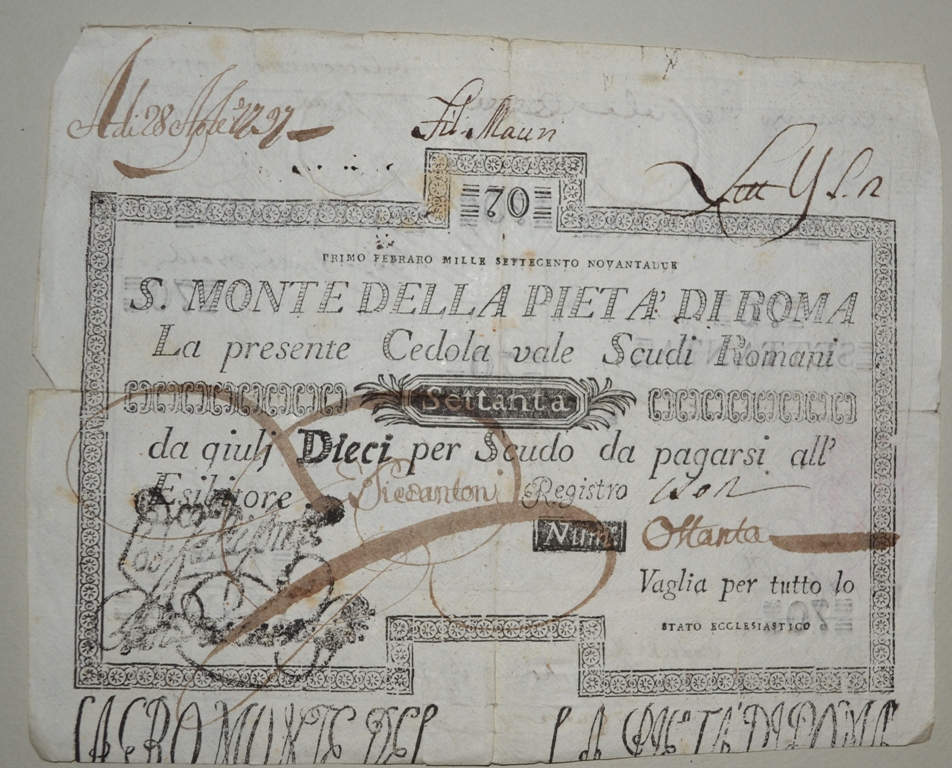 Adi 28 Aple 1797
Fil. Mauri
Lett Y S. n
70
PRIMO FEBRARO MILLE SETTECENTO NOVANTADUE
S. MONTE DELLA PIETA' DI ROMA
La presente Cedola vale Scudi Romani
Settanta
da giulj Dieci per Scudo da pagarsi all'
Esibitore Registro
Num. Ottanta
Vaglia per tutto lo
STATO ECCLESIASTICO